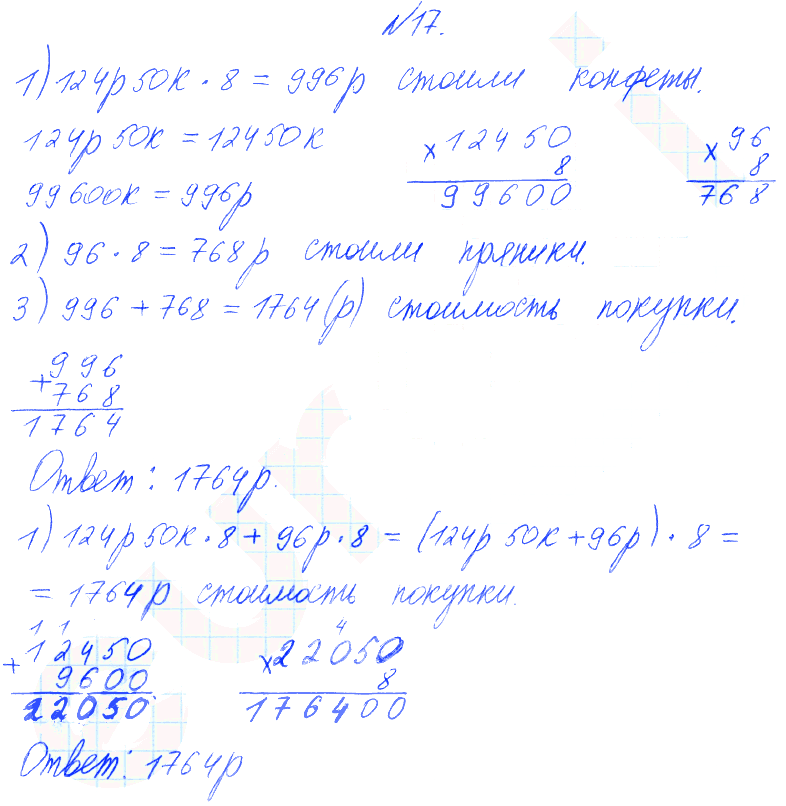 №17.
1) 124р 50к · 8 = 996р стоили конфеты.
124р 50к = 12450к
99600к = 996р
× 12450
8
99600
× 96
8
768
2) 96 · 8 = 768р стоили пряники.
3) 996 + 768 = 1764 (р) стоимость покупки.
+ 996
768
1764
Ответ: 1764р.
1) 124р 50к · 8 + 96р · 8 = (124р 50к + 96р) · 8 =
= 1764р стоимость покупки.
1 1
+ 12450
9600
22050
4
× 22050
8
176400
Ответ: 1764р